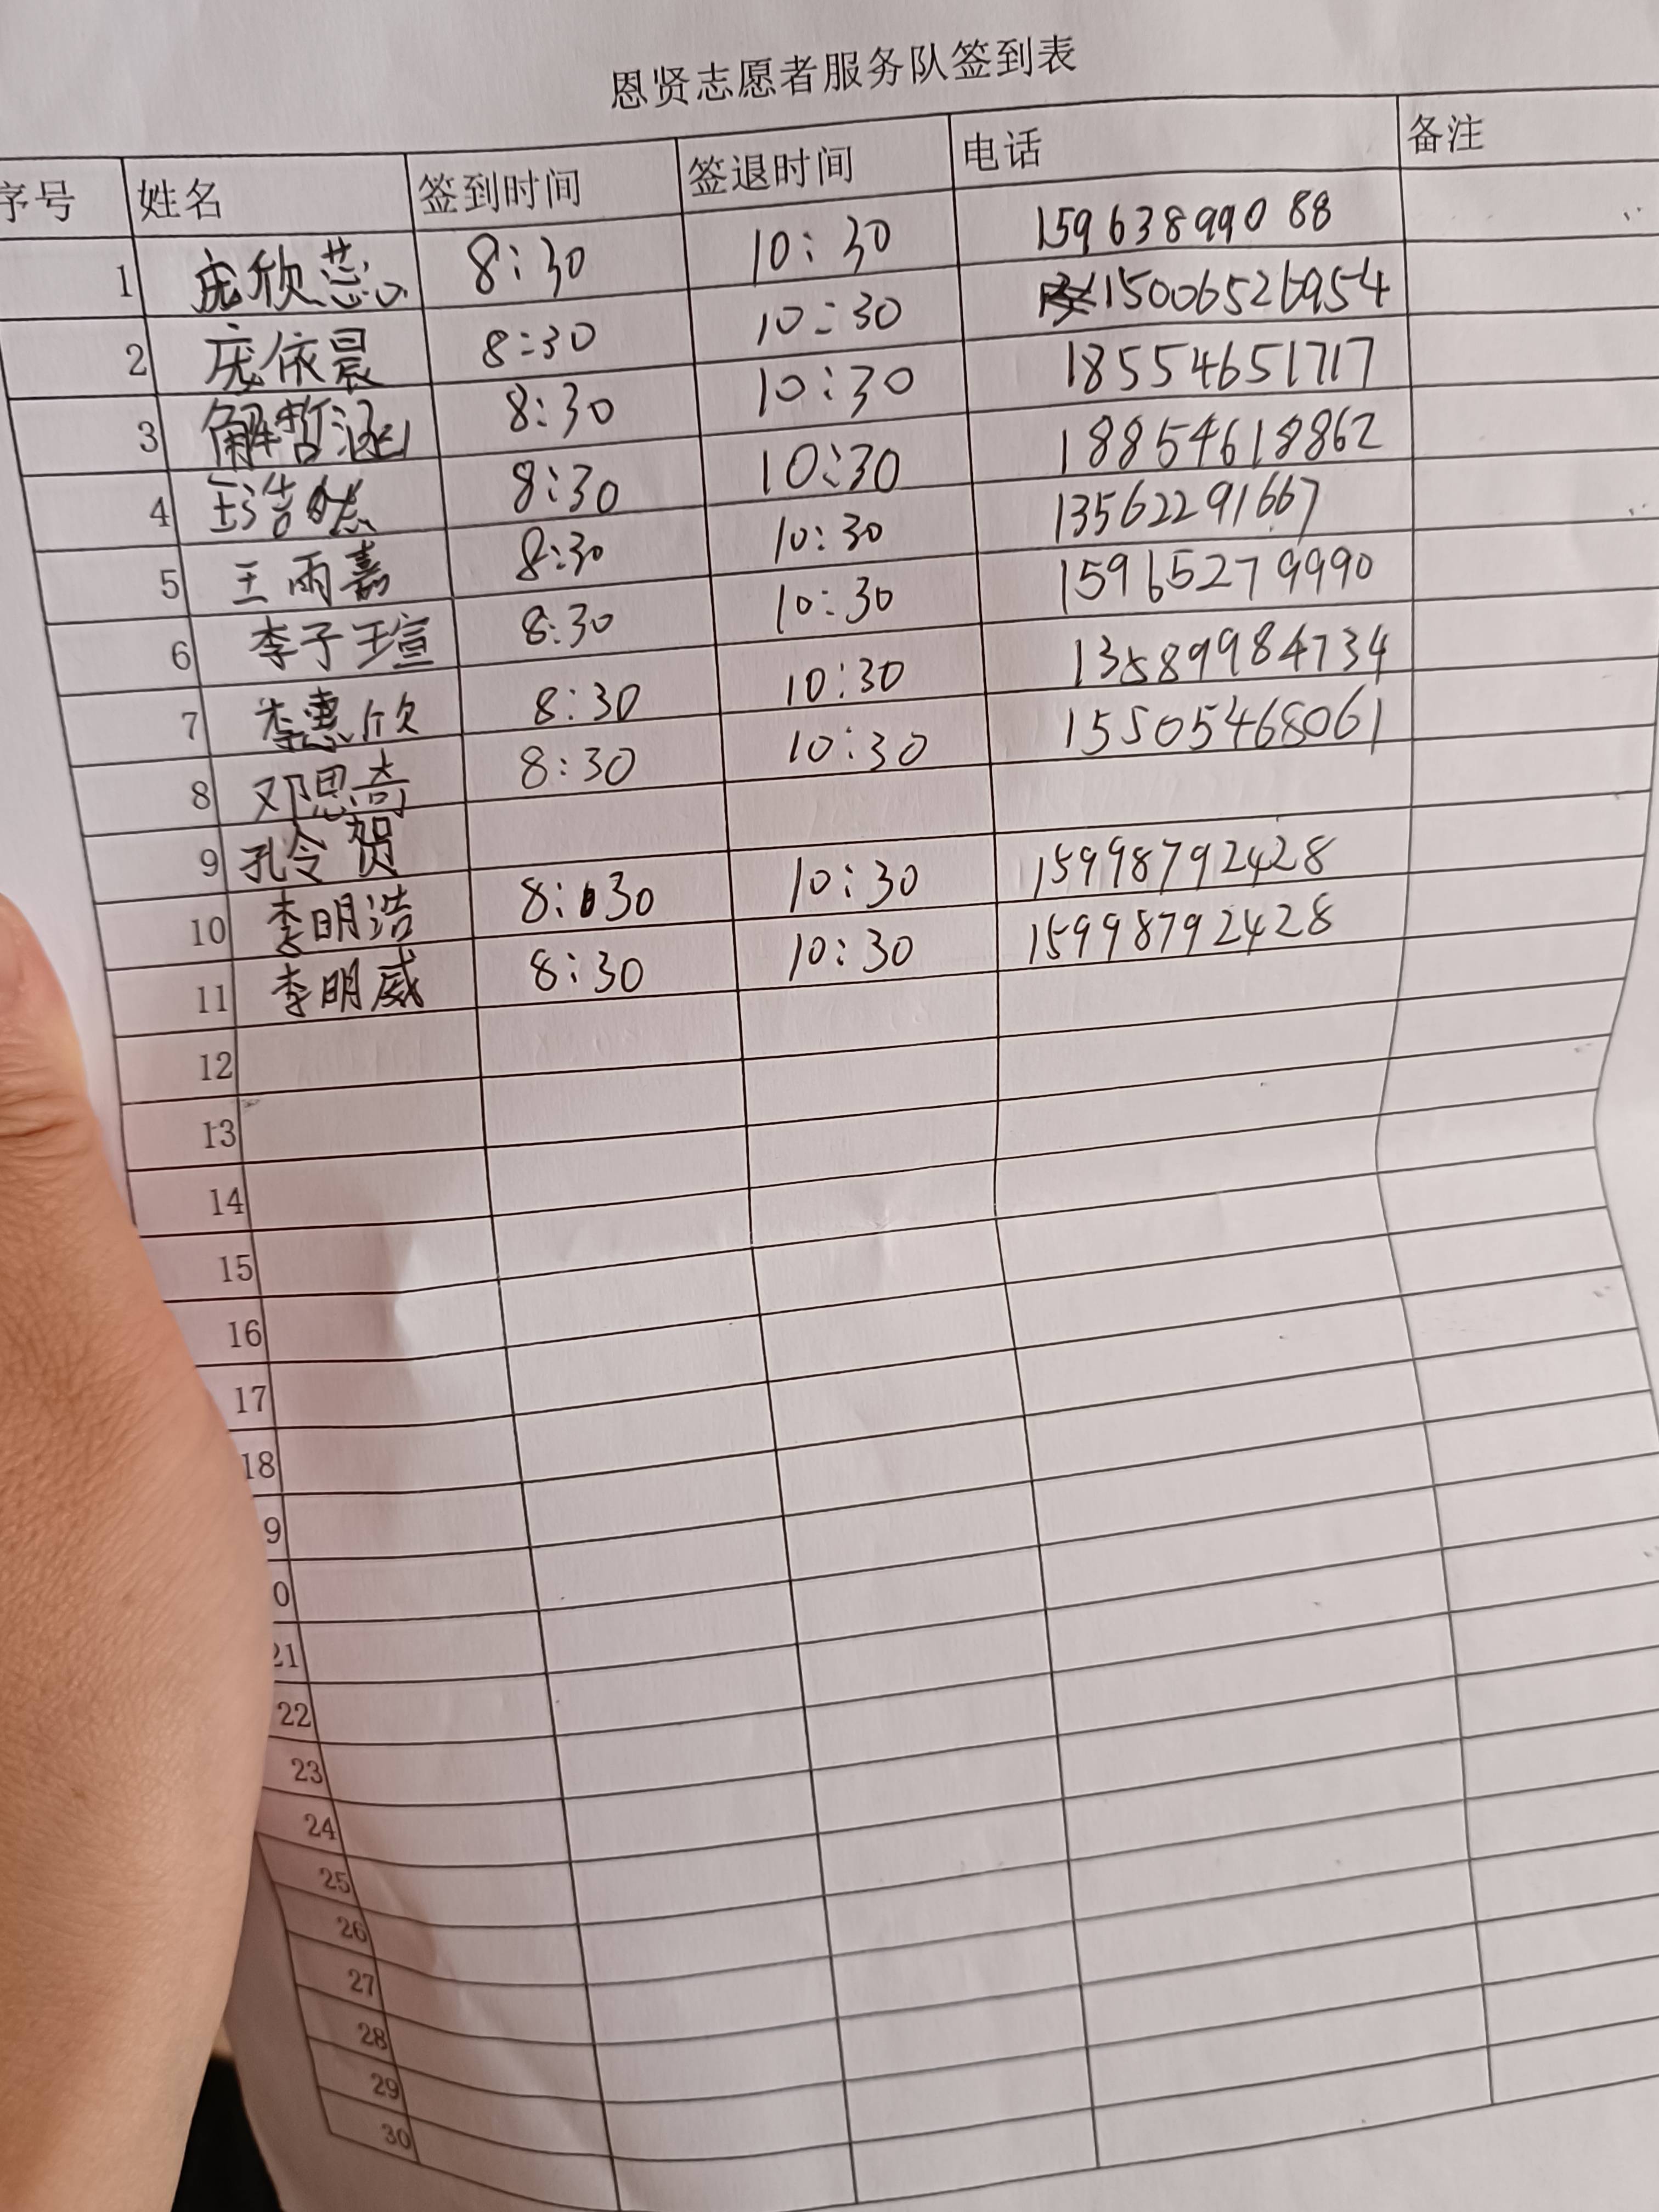 恩贤志愿者服务队签到表
序号 姓名 签到时间 签退时间 电话 备注
1 庞欣蕊 8:30 10:30 15963899088
2 庞依晨 8:30 10:30 15006526954
3 解哲涵 8:30 10:30 18554651717
4 王浩然 8:30 10:30 18854618862
5 王雨嘉 8:30 10:30 13562291667
6 李子瑄 8:30 10:30 15965279990
7 李惠欣 8:30 10:30 13589984734
8 邓思奇 8:30 10:30 15505468061
9 孔令贺
10 李明浩 8:30 10:30 15998792428
11 李明威 8:30 10:30 15998792428
12
13
14
15
16
17
18
9
0
21
22
23
24
25
26
27
28
29
30